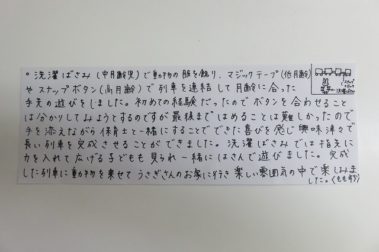 。洗濯ばさみ(中月齢児)で動物の服を飾り、マジックテープ(低月齢)
やスナップボタン(高月齢)で列車を連結して月齢に合った
手先の遊びをしました。初めての経験だったのでボタンを合わせること
は分かりしてみようとするのですが最後まではめることは難しかったので
手を添えながら保育士と一緒にすることでできた喜びを感じ興味津々で
長い列車を完成させることができました。洗濯ばさみでは指先に
力を入れて広げる子どもも見られ一緒にはさんで遊びました。完成
した列車に動物を乗せてうさぎさんのお家に行き楽しい雰囲気の中で楽しみま
した。(もも組)